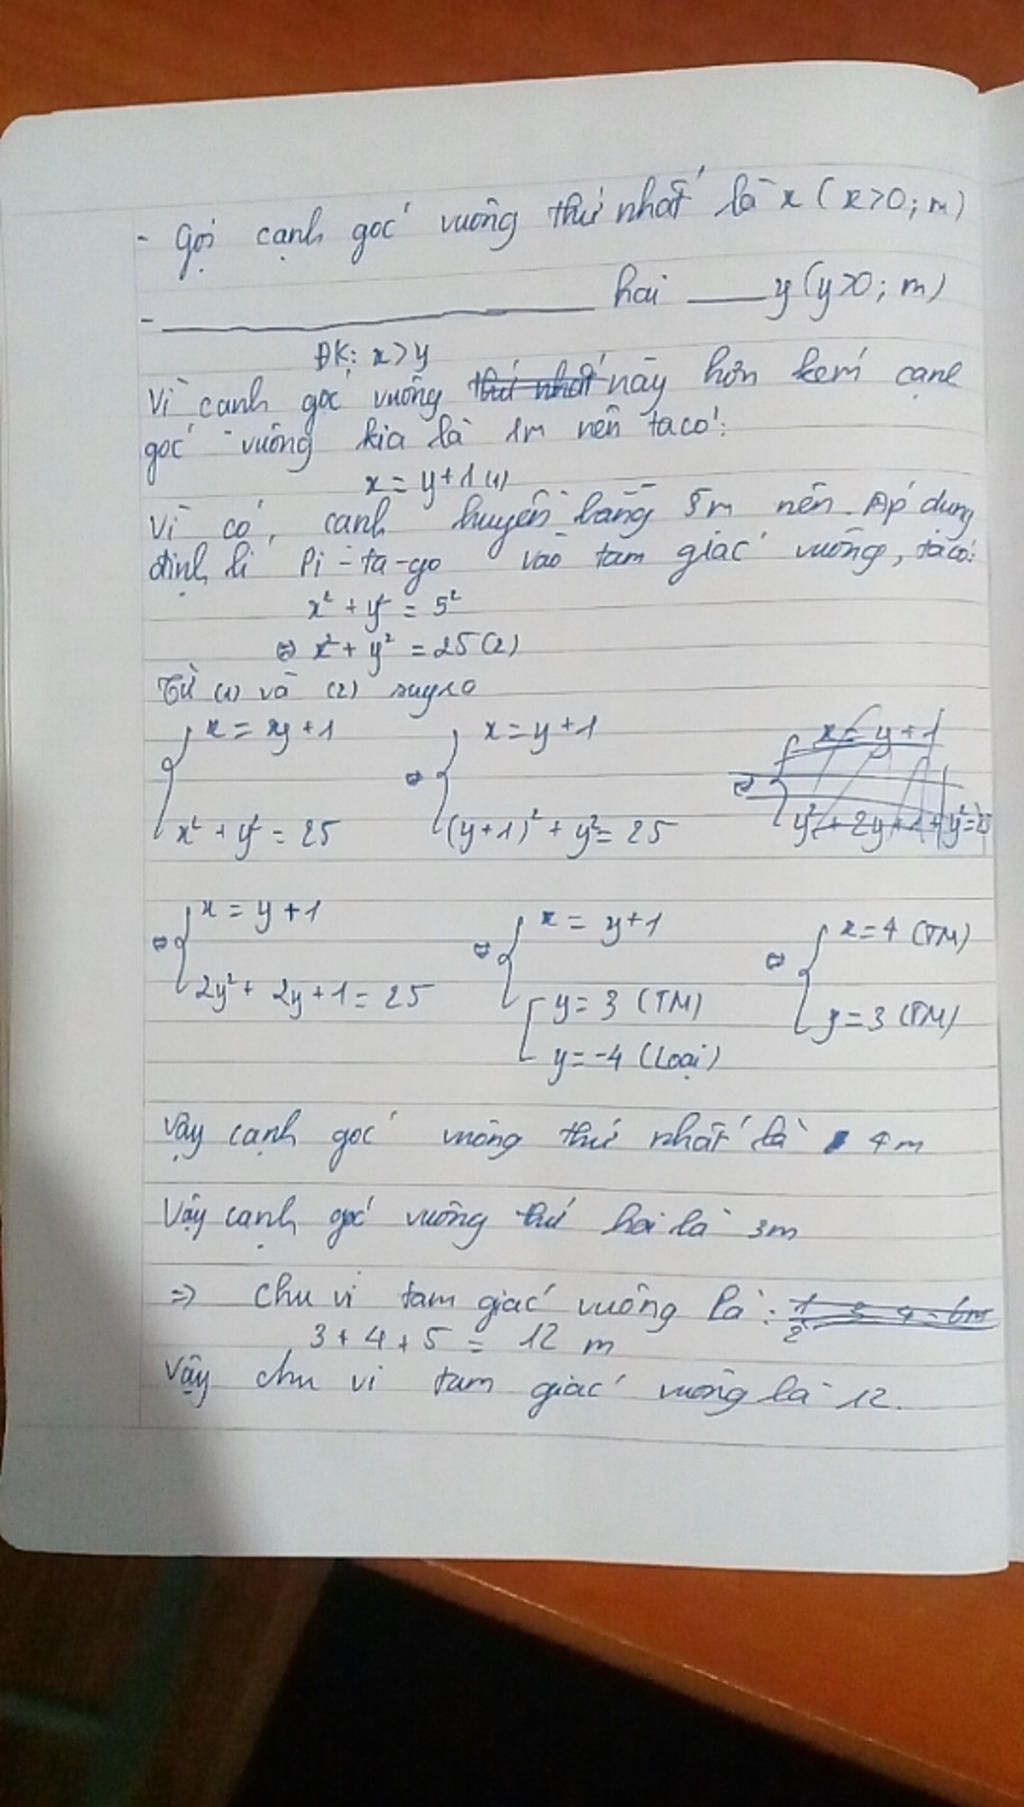 - Gọi cạnh góc vuông thứ nhất là x (x>0; m)
- ____ hai ____ y (y>0; m)
ĐK: x>y
Vì cạnh góc vuông thứ nhất này hơn kém cạnh
góc vuông kia là 1m nên ta có:
x = y+1 (1)
Vì có, cạnh huyền bằng 5m nên Áp dụng
định lí Pi-ta-go vào tam giác vuông, ta có:
x² + y² = 5²
⇔ x² + y² = 25 (2)
Từ (1) và (2) suy ra
{ x = y + 1 ⇔ { x = y + 1 ⇔ { x = y + 1
x² + y² = 25 (y+1)² + y² = 25 y² + 2y + 1 + y² = 25
⇔ { x = y + 1 ⇔ { x = y + 1 ⇔ { x = 4 (TM)
2y² + 2y + 1 = 25 [ y = 3 (TM) y = 3 (TM)
y = -4 (Loại)
Vậy cạnh góc vuông thứ nhất là 4m
Vậy cạnh góc vuông thứ hai là 3m
=> Chu vi tam giác vuông là:
3 + 4 + 5 = 12 m
Vậy chu vi tam giác vuông là 12.